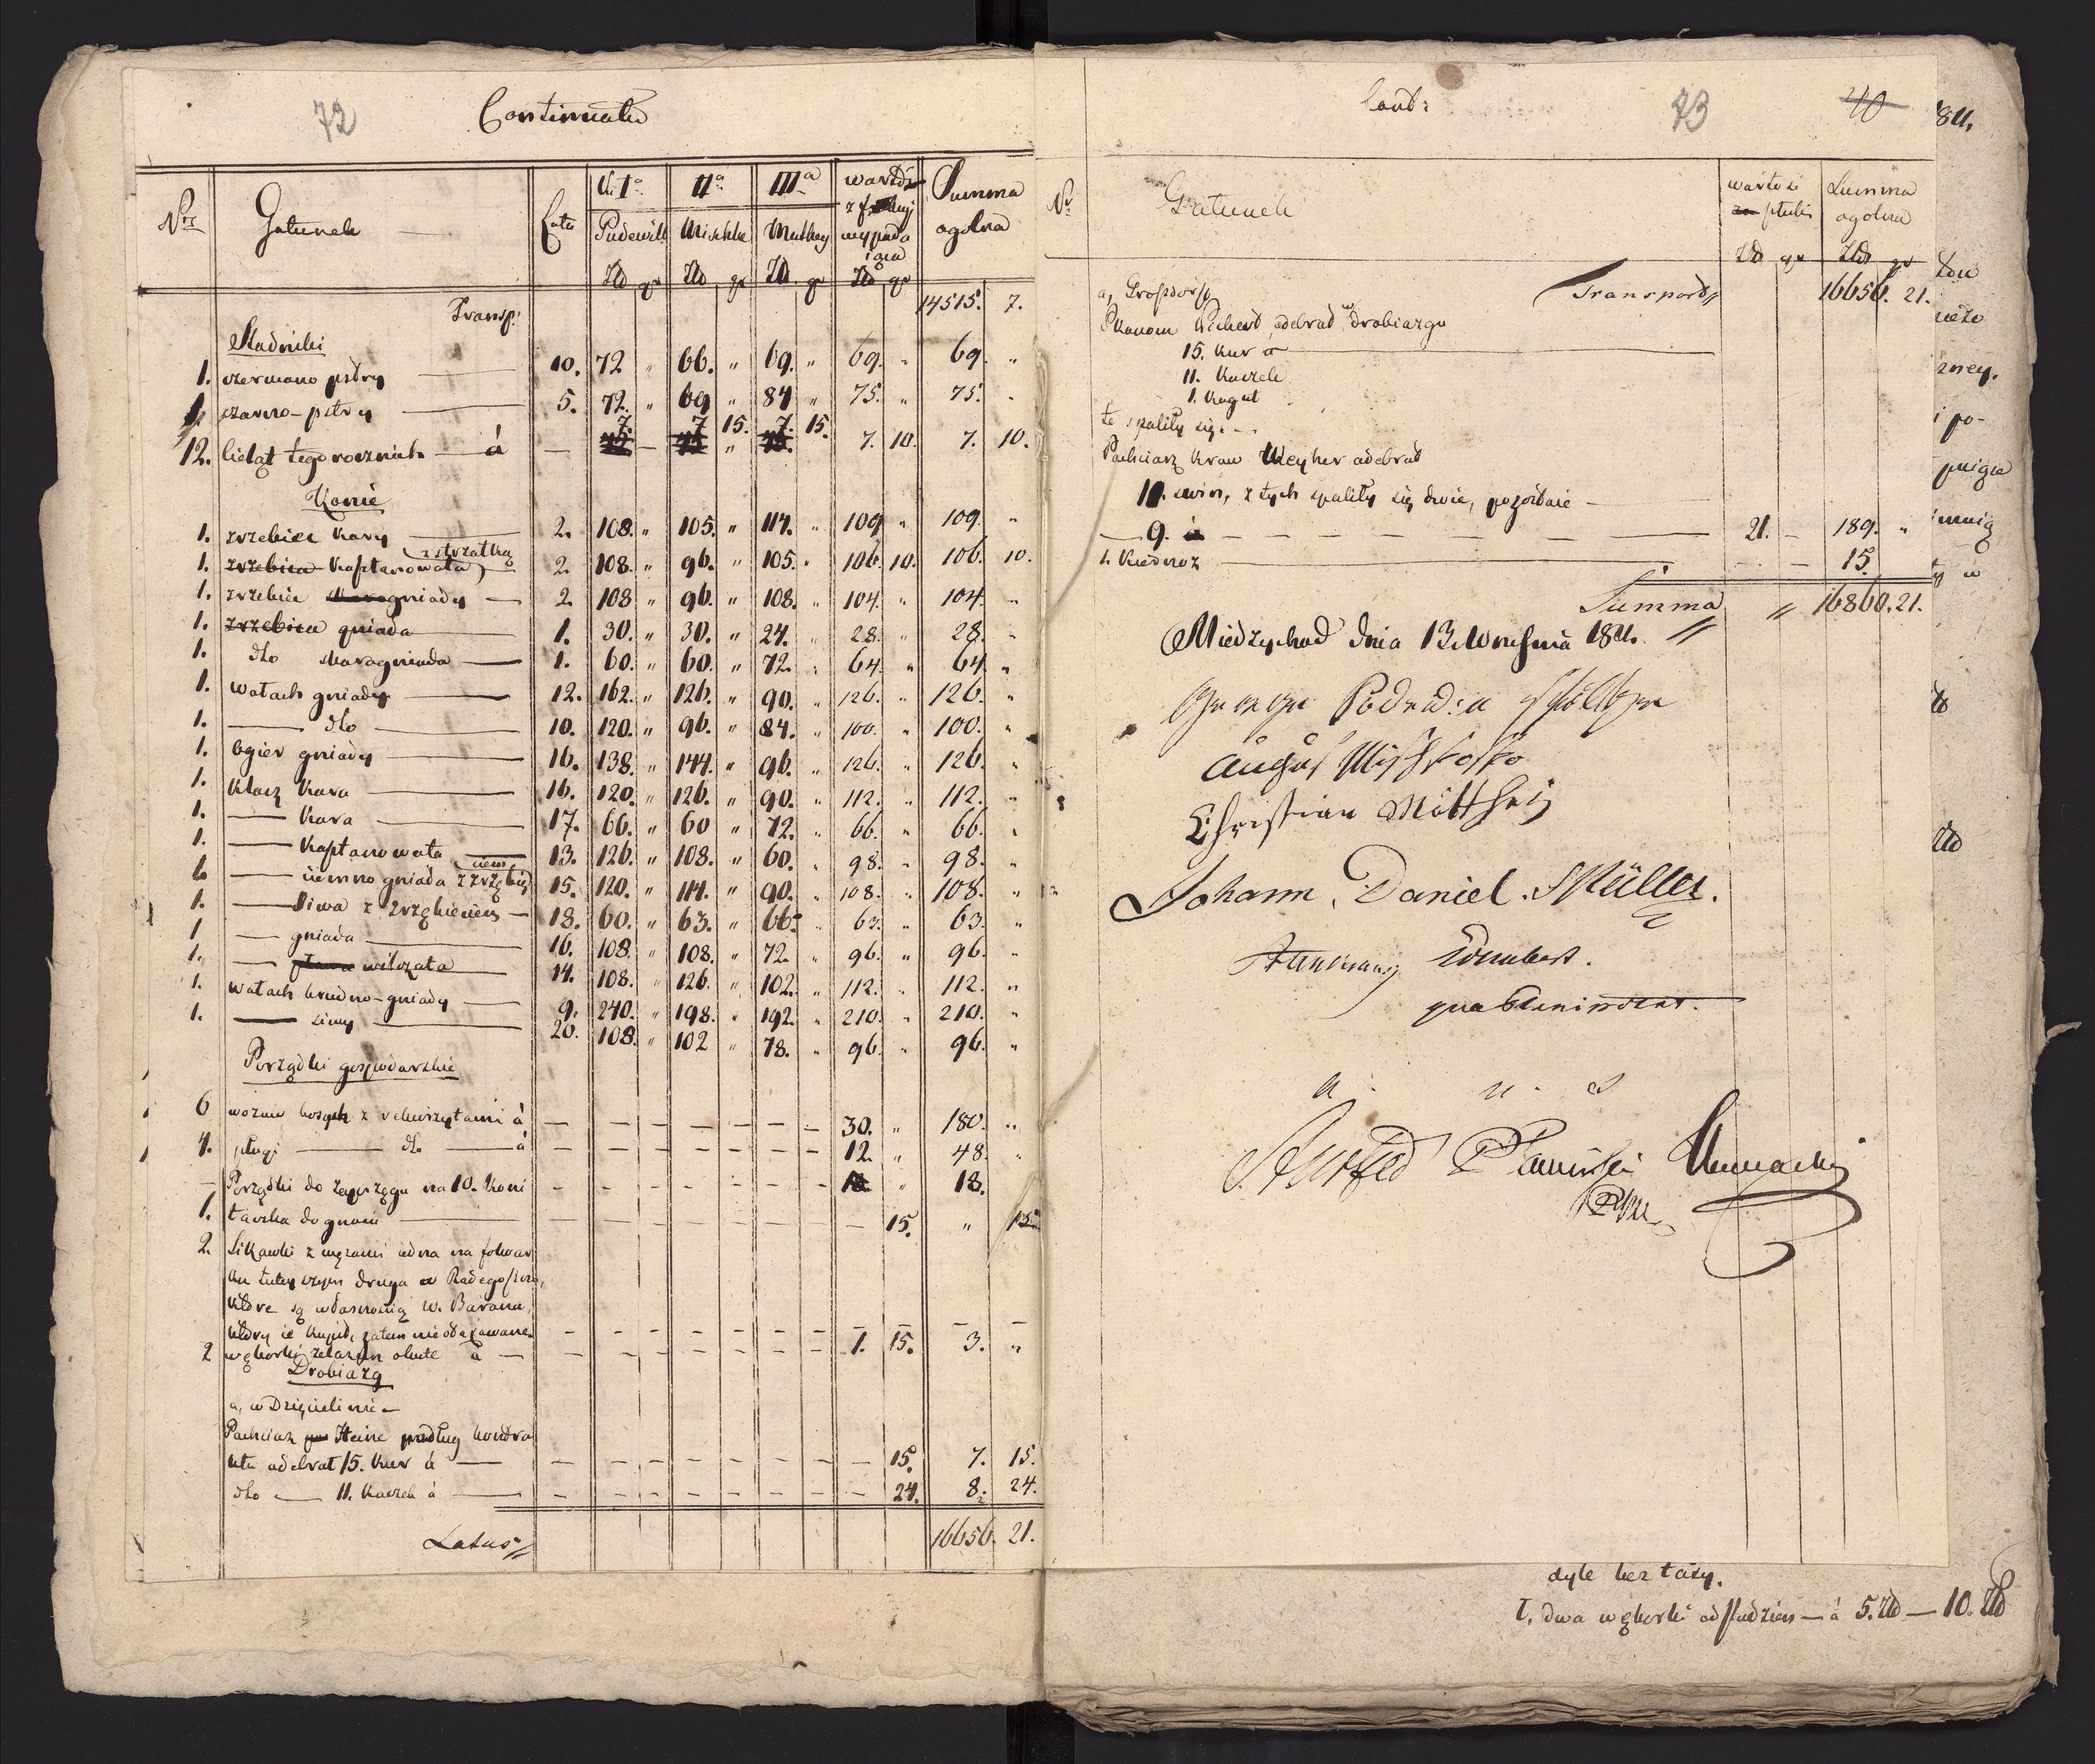 72 Continuatio
Nr Gatunek Lata Ur Ia IIa IIIa wartość Summa
z ... wypada ogolna
Pudewill Mischke Mutkey
Zł gr Zł gr Zł gr Zł gr
Transp: 14515. 7.
Stadniki
1. czerwono pstry 10. 72 " 66. " 69. " 69. " 69. "
1. czarno-pstry 5. 72. " 69 " 84 " 75. " 75. "
12. cieląt tegorocznich à — 7. — 7 15. 7. 15. 7. 10. 7. 10.
Konie
1. zrzebiec kary 2. 108. " 105. " 114. " 109 " 109. "
1. zrzebica kaptanowata z strzałką 2. 108. " 96. " 105. " 106. 10. 106. 10.
1. zrzebiec gniady 2. 108 " 96. " 108. " 104. " 104. "
1. zrzebica gniada 1. 30. " 30. " 24. " 28. " 28. "
1. dto skarogniada 1. 60. " 60. " 72. " 64. " 64 "
1. wałach gniady 12. 162. " 126. " 90. " 126. " 126. "
1. — dto 10. 120. " 96. " 84. " 100. " 100. "
1. Ogier gniady 16. 138. " 144. " 96. " 126. " 126. "
1. Klacz kara 16. 120. " 126. " 90. " 112. " 112. "
1. — kara 17. 66. " 60 " 72. " 66. " 66. "
1. — kaptanowata 13. 126. " 108. " 60. " 98. " 98. "
1. — ciemno gniada z zrzębięciem 15. 120. " 114. " 90. " 108. " 108. "
1. — siwa z zrzębieciem 18. 60. " 63. " 66. " 63. " 63. "
1 — gniada 16. 108. " 108. " 72. " 96. " 96. "
1. — wilczata 14. 108. " 126. " 102. " 112. " 112. "
1. wałach brudno-gniady 9. 240. " 198. " 192. " 210. " 210. "
1. — siwy 20. 108. " 102 " 78. " 96. " 96. "
Porządki gospodarskie
6 wozów bosych z rekwizytami à 30. " 180. "
4. pługi — dto — à 12. " 48. "
— Porządki do zaprzęgu na 10. koni 18. " 18.
1. taczka do gnoiu — 15. " 15
2. Sikawki z wężami iedna na folwar
ku tuteyszym druga w Radegoszczu,
które są własnością W. Barana,
który ie kupił, zatem nie otaxowane.
2 węborki żelazem okute à — 1. 15. 3. "
Drobiazg
a, w Dzięcielinie
Pachciarz Heine podług kontra
ktu odebrał 15. kur à — 15. 7. 15.
dto — 11. kaczek à — 24. 8. 24.
Latus 16656. 21.
Cont: 73 40
Nr Gatunek wartość Summa
sztuki ogolna
Zł gr Złt gr
a, Grossdorf Transport 16656. 21.
Ekonom odebrał w drobiazgu
15. kur à
11. kaczek
1. kogut
te spality się. —
Pachciarz krow Weyher odebrał
11. swin, z tych spality się dwie, pozostaie —
— 9. à 21. — 189. "
1. kiernoz — — 15.
Summa " 16860. 21.
Miedzychod dnia 13. Września 1811.
August Mischke
Christian Mutthey
Johann Daniel Müller.
a. u. s.
811.
zney.
i po-
Zł
dyle bez taxy.
t. dwa węborki od studzien — à 5. Zł — 10. Zł